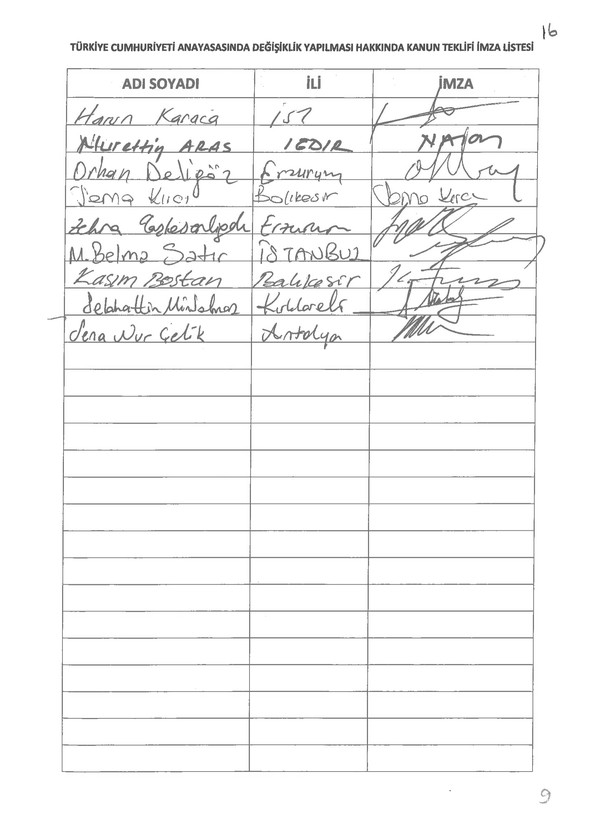 16
TÜRKİYE CUMHURİYETİ ANAYASASINDA DEĞİŞİKLİK YAPILMASI HAKKINDA KANUN TEKLİFİ İMZA LİSTESİ
ADI SOYADI İLİ İMZA
Harun Karaca İST
Nurettin ARAS IĞDIR
Orhan Deligöz Erzurum
Sema Kırcı Balıkesir Sema Kırcı
Zehra Erzurum
M. Belma Satır İSTANBUL
Kasım Bostan Balıkesir
Selahattin Minsolmaz Kırklareli
Sena Nur Çelik Antalya
9